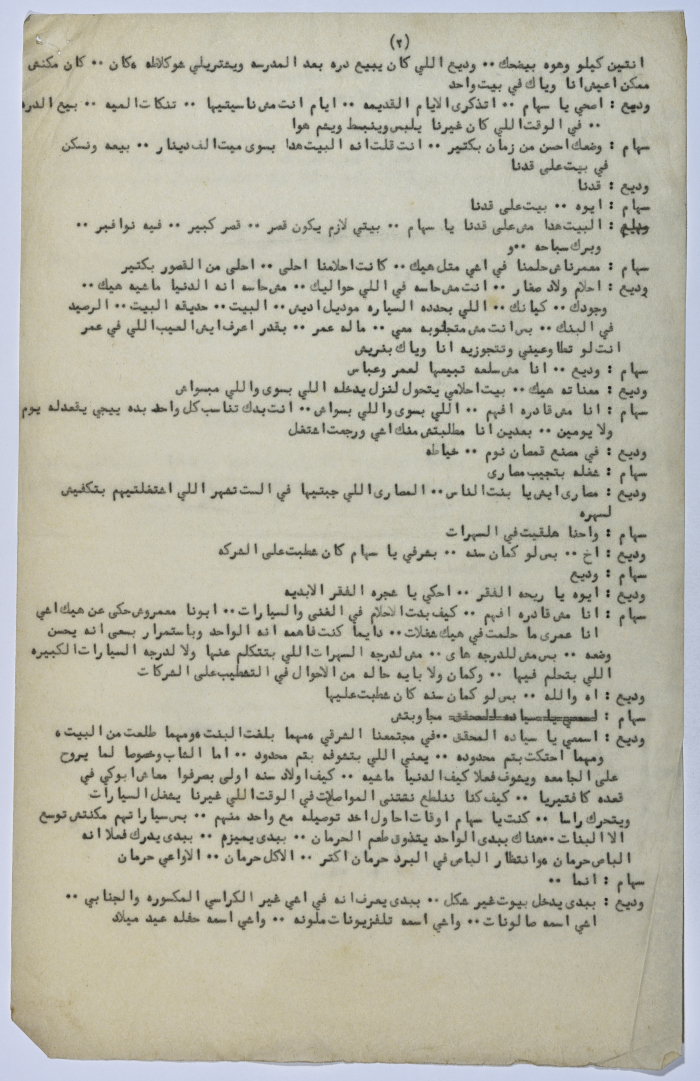 (٢)
اتنين كيلو وهوه بيضحك •• وديع اللي كان يبيع دره بعد المدرسه ويشتريلي شوكلاطه ٥كان •• كان مكنش
ممكن اعيش انا وياك في بيت واحد
وديع : اصحي يا سهام •• اتذكرى الايام القديمه •• ايام انت مش ناسيتيها •• تنكات الميه •• بيع الدره
•• في الوقت اللي كان غيرنا يلبس وينبسط ويشم هوا
سهام : وضعك احسن من زمان بكتير •• انت قلت انه البيت هدا بسوى ميت الف دينار •• بيعه ونسكن
في بيت على قدنا
وديع : قدنا
سهام : ايوه •• بيت على قدنا
وديع : البيت هدا مش على قدنا يا سهام •• بيتي لازم يكون قصر •• قصر كبير •• فيه نوافير ••
وبرك سباحه ••و
سهام : معمرناش حلمنا في اشي متل هيك •• كانت احلامنا احلى •• احلى من القصور بكتير
وديع : احلام ولاد صغار •• انت مش حاسه في اللي حواليك •• مش حاسه انه الدنيا ماشيه هيك ••
وجودك •• كيانك •• اللي بحدده السياره موديل اديش •• البيت •• حديقه البيت •• الرصيد
في البنك •• بس انت مش متجاوبه معي •• ماله عمر •• بقدر اعرف ايش العيب اللي في عمر
انت لو تطاوعيني وتتجوزيه انا وياك بنريش
سهام : وديع •• انا مش سلعه تبيعها لعمر وعباس
وديع : معناته هيك •• بيت احلامي يتحول لنزل يدخله اللي بسوى واللي مبسواش
سهام : انا مش قادره افهم •• اللي بسوى واللي بسواش •• انت بدك تناسب كل واحد بده ييجي يقعدله يوم
ولا يومين •• بعدين انا مطلبتش منك اشي ورجعت اشتغل
وديع : في مصنع قمصان نوم •• خياطه
سهام : شغله بتجيب مصارى
وديع : مصارى ايش يا بنت الناس •• المصارى اللي جبتيها في الست تشهر اللي اشتغلتيهم بتكفيش
لسهره
سهام : واحنا هلقيت في السهرات
وديع : اخ •• بس لو كمان سنه •• بشرفي يا سهام كان شطبت على الشركه
سهام : وديع
وديع : ايوه يا ريحه الفقر •• احكي يا شجره الفقر الابديه
سهام : انا مش قادره افهم •• كيف بدت الاحلام في الغنى والسيارات •• ابونا معمروش حكى عن هيك اشي
انا عمرى ما حلمت في هيك شغلات •• دايما كنت فاهمه انه الواحد وباستمرار بسعى انه يحسن
وضعه •• بس مش للدرجه هاى •• مش لدرجه السهرات اللي بتتكلم عنها ولا لدرجه السيارات الكبيره
اللي بتحلم فيها •• وكمان ولا بايه حاله من الاحوال في التشطيب على الشركات
وديع : اه والله •• بس لو كمان سنه كان شطبت عليها
سهام : اسمعي يا سياده المحقق مجاوبتش
وديع : اسمعي يا سياده المحقق ••في مجتمعنا الشرقي ٥مهما بلغت البنت ٥ومهما طلعت من البيت ٥
ومهما احتكت بتم محدوده •• يعني اللي بتشوفه بتم محدود •• اما الشاب وخصوصا لما يروح
على الجامعه ويشوف فعلا كيف الدنيا ماشيه •• كيف اولاد سنه اولى بصرفوا معاش ابوكي في
قعده كافتيريا •• كيف كنا نتلطع نفتش المواصلات في الوقت اللي غيرنا يشغل السيارات
ويتحرك راسا •• كنت يا سهام اوقات احاول اخد توصيله مع واحد منهم •• بس سياراتهم مكنتش توسع
الا البنات ••هناك ببدى الواحد يتذوق طعم الحرمان •• ببدى يميزم •• ببدى يدرك فعلا انه
الباص حرمان ٥وانتظار الباص في البرد حرمان اكتر •• الاكل حرمان •• الاواعي حرمان
سهام : انما ••
وديع : ببدى يدخل بيوت غير شكل •• ببدى يعرف انه في اشي غير الكراسي المكسوره والجنابي ••
اشي اسمه صالونات •• واشي اسمه تلفزيونات ملونه •• واشي اسمه حفله عيد ميلاد